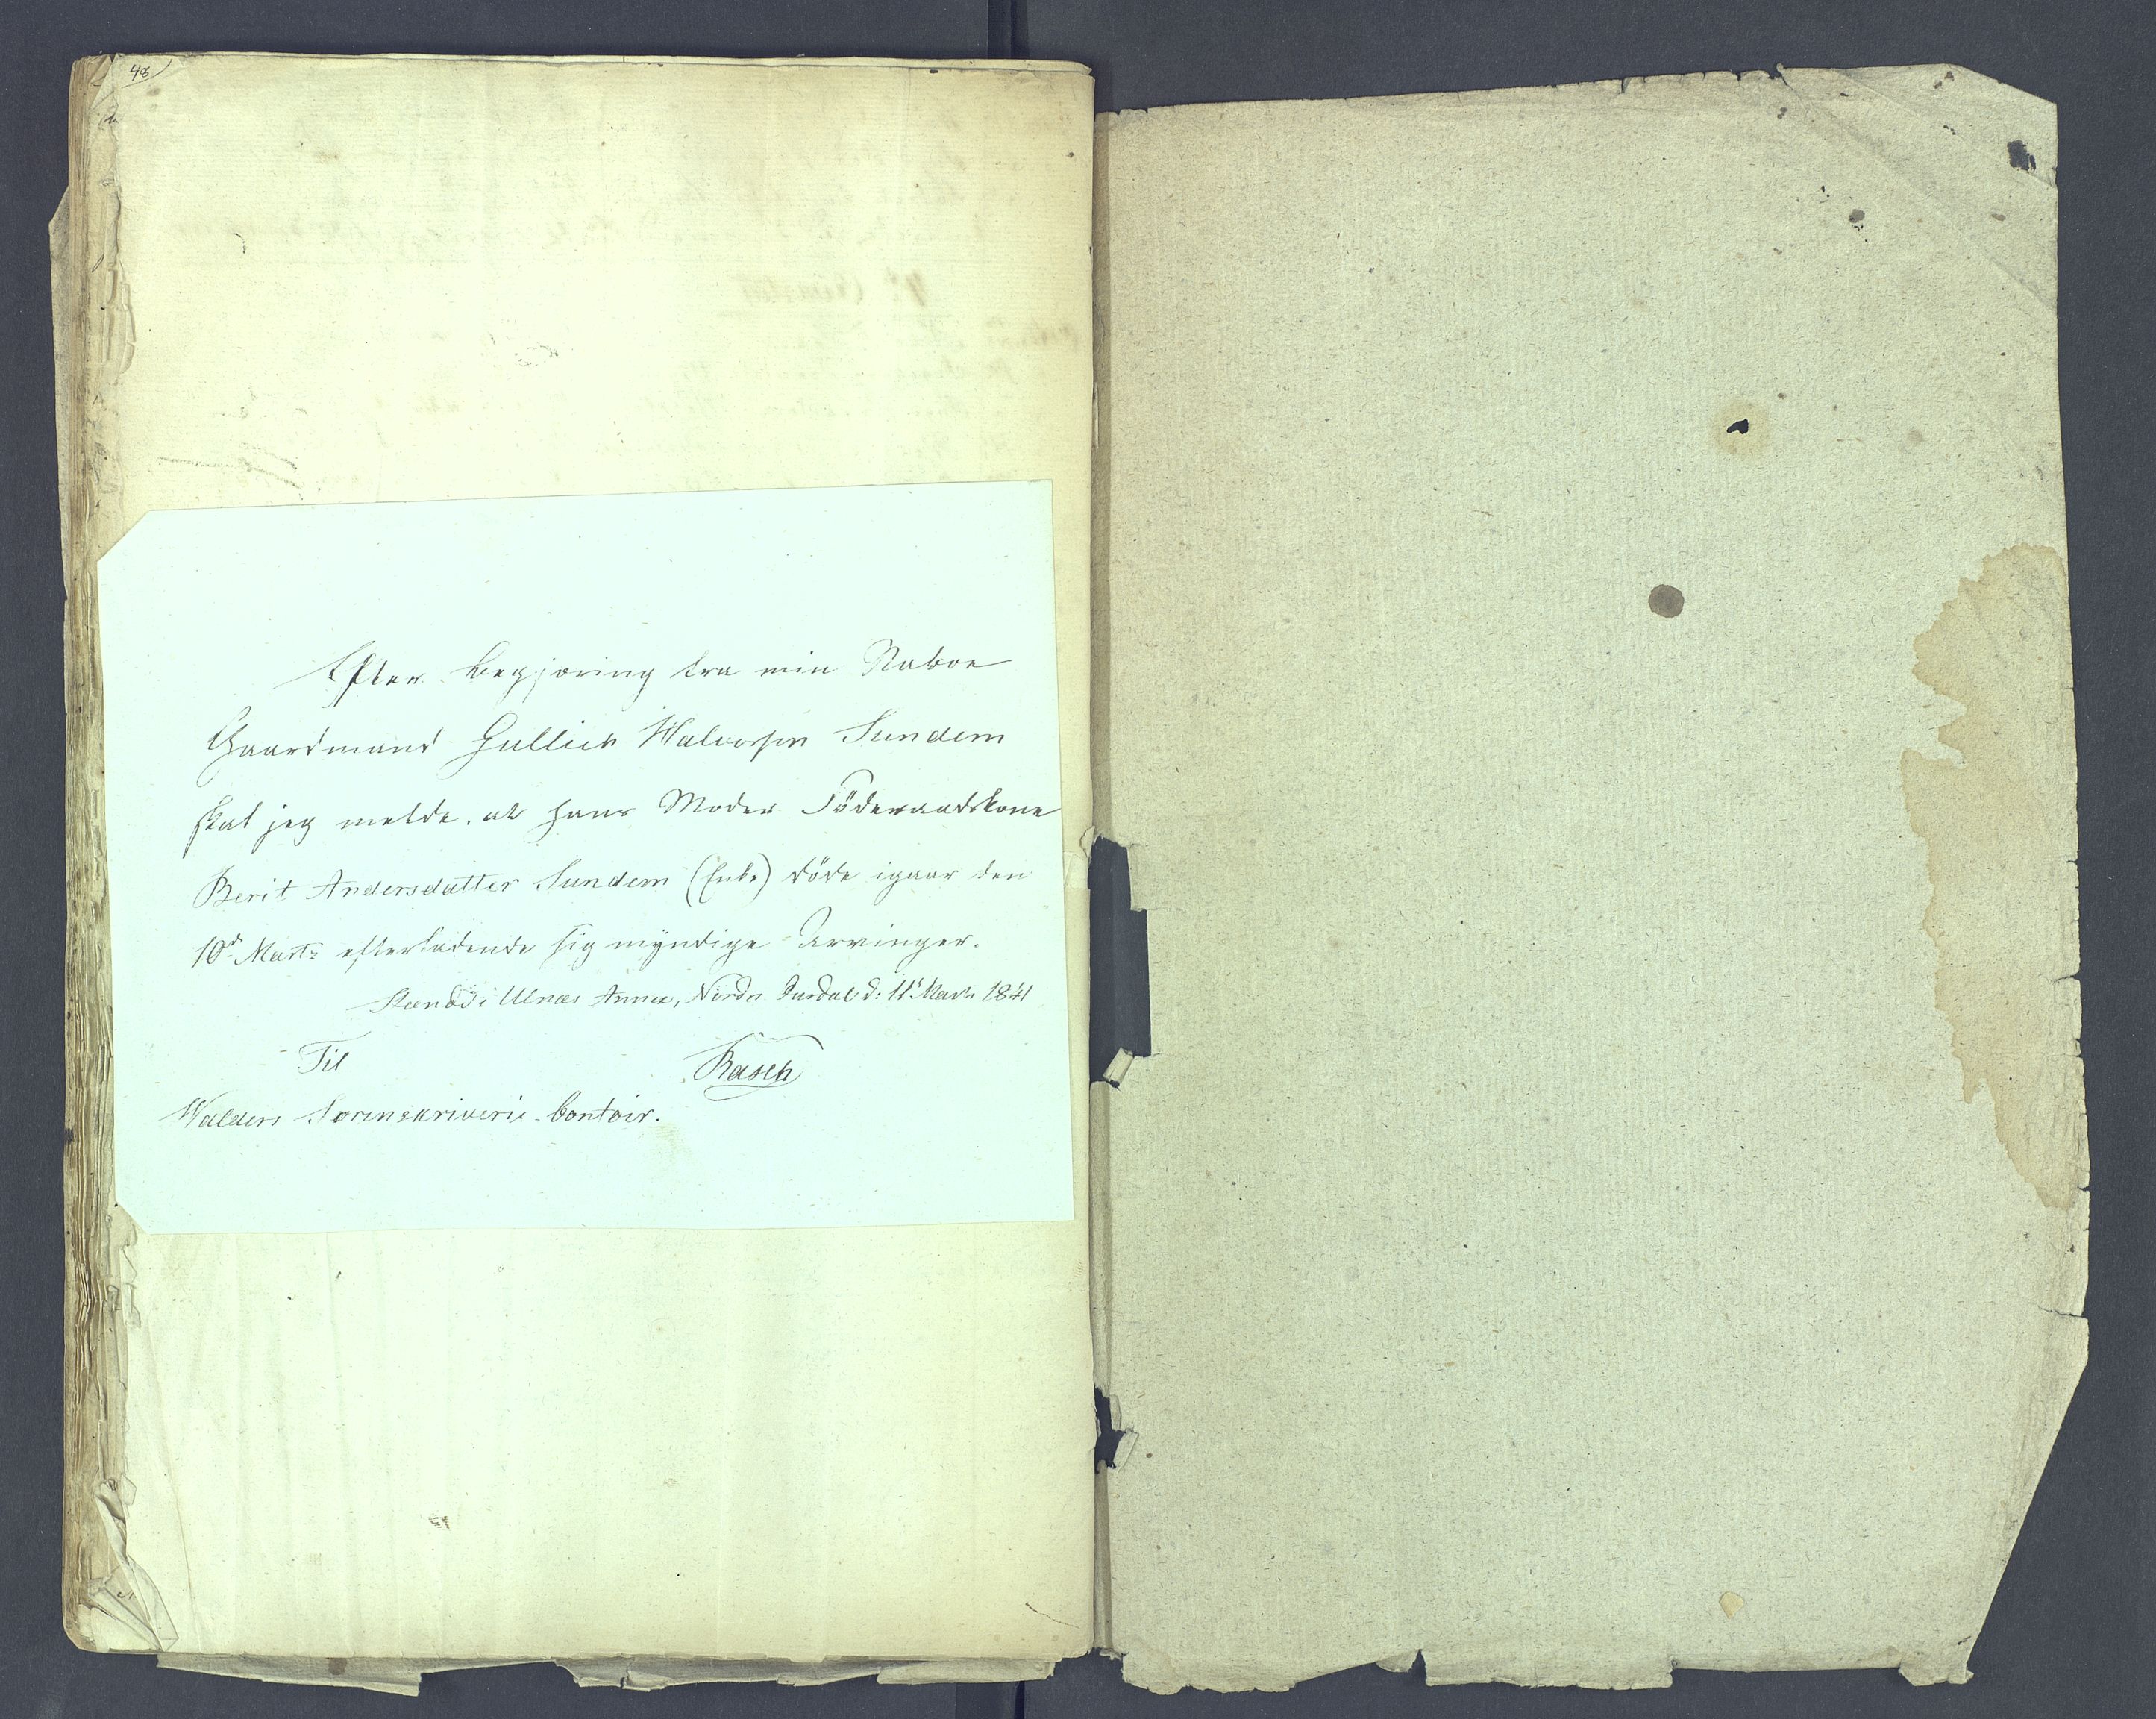 48
Efter Begjæring fra min Naboe
Gaardmand Gullick Halvorsen Sundem
skal jeg melde, at hans Moder Föderaadskone
Berit Andersdatter Sundem (Enke) döde igaar den
10d Marts efterladende sig myndige Arvinger.
Ulnæs Annex, Nordre Aurdal d: 11t Marts 1841
Til
Rasch
Walders Sorenskriverie-Contoir.